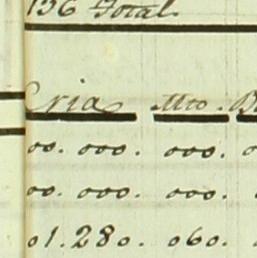 136 Total
Cria Mto.
00. 000. 000.
00. 000. 000.
01.280. 060.